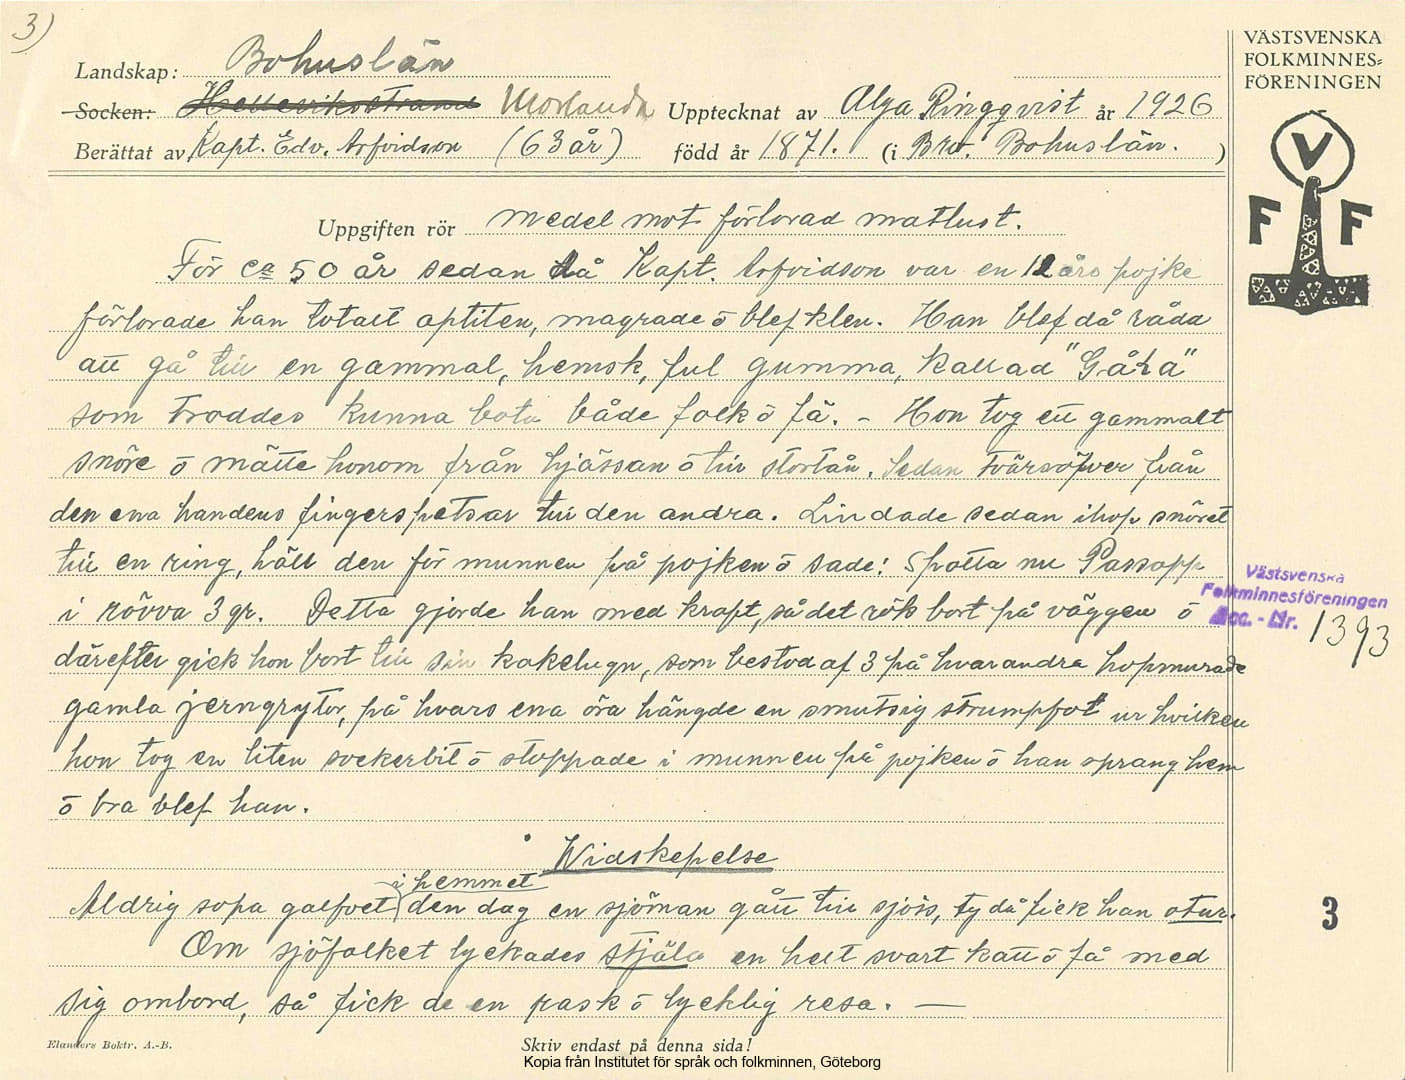 3)
Landskap: Bohuslän
Socken: Morlanda Upptecknat av Olga Ringqvist år 1926
Berättat av Kapt. Edv. Arfvidson (63 år) född år 1871. (i Bro. Bohuslän. )
VÄSTSVENSKA
FOLKMINNES=
FÖRENINGEN
V
F F
Uppgiften rör medel mot förlorad matlust.
För ca 50 år sedan då Kapt. Arfvidson var en 12 års pojke
förlorade han totalt aptiten, magrade ō blef klen. Han blef då rådd
att gå till en gammal, hemsk, ful gumma, kallad "Gåka"
som troddes kunna bota både folk ō fä. – Hon tog ett gammalt
snöre ō mätte honom från hjässan ō till stortån. Sedan tvärsöfver från
den ena handens fingerspetsar till den andra. Lindade sedan ihop snöret
till en ring, höll den för munnen på pojken ō sade: Spotta nu Passopp
i rövva 3 gr. Detta gjorde han med kraft, så det rök bort på väggen ō
därefter gick hon bort till sin kakelugn, som bestod af 3 på hvarandra hopmurade
gamla jerngrytor, på hvars ena öra hängde en smutsig strumpfot ur hvilken
hon tog en liten sockerbit ō stoppade i munnen på pojken ō han sprang hem
ō bra blef han.
Västsvenska
Folkminnesföreningen
Acc. - Nr. 1393
Widskepelse
Aldrig sopa golfvet i hemmet den dag en sjöman gått till sjös, ty då fick han otur.
Om sjöfolket lyckades stjäla en helt svart katt ō få med
sig ombord, så fick de en rask ō lycklig resa. —
3
Elanders Boktr. A.-B.
Skriv endast på denna sida!
Kopia från Institutet för språk och folkminnen, Göteborg